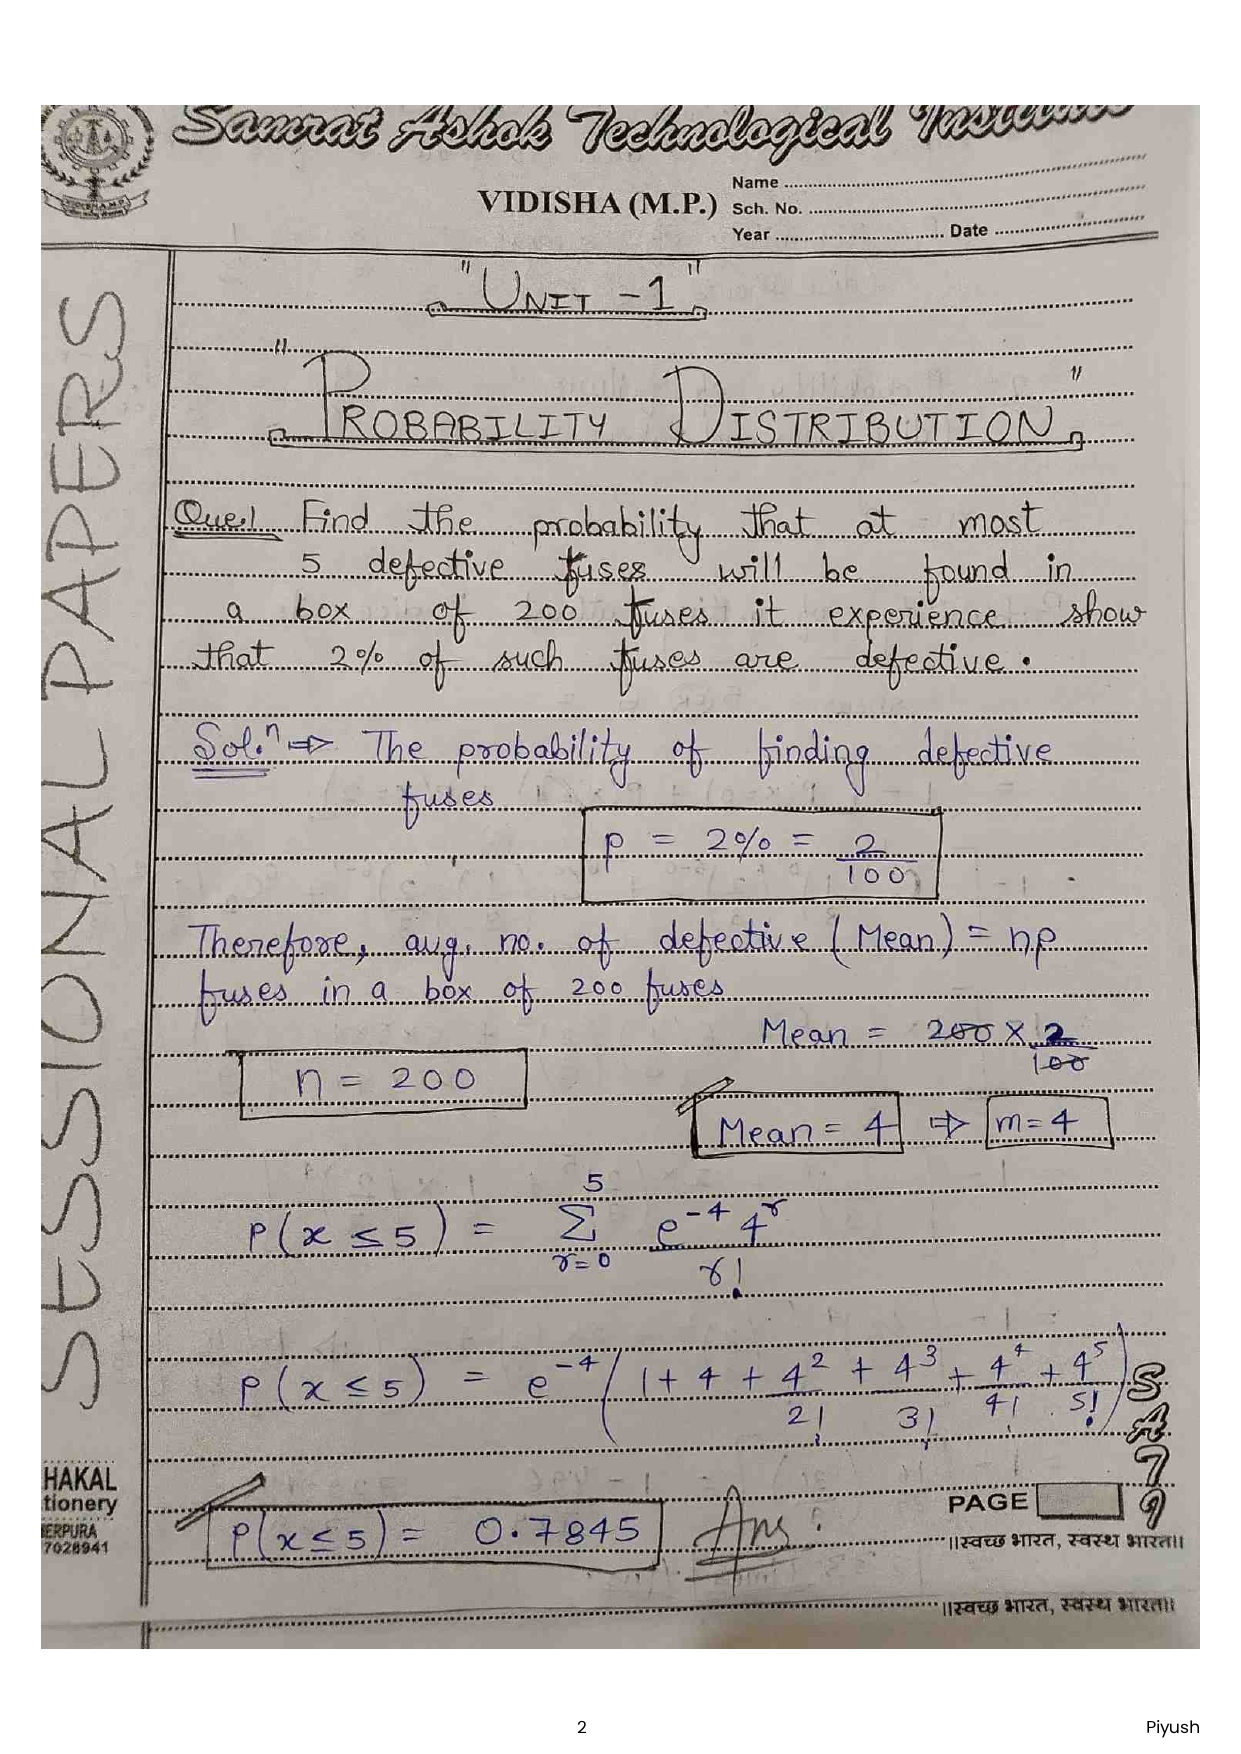 Samrat Ashok Technological Institute
VIDISHA (M.P.)
Name
Sch. No.
Year Date
SESSIONAL PAPERS
"UNIT - 1"
"PROBABILITY DISTRIBUTION"
Que.1 Find the probability that at most
5 defective fuses will be found in
a box of 200 fuses it experience show
that 2% of such fuses are defective.
Sol.ⁿ ⇒ The probability of finding defective
fuses
p = 2% = 2/100
Therefore, avg. no. of defective (Mean) = np
fuses in a box of 200 fuses
Mean = 200 × 2/100
n = 200
Mean = 4 ⇒ m = 4
P(x ≤ 5) = Σ_{r=0}^{5} e⁻⁴ 4^r / r!
P(x ≤ 5) = e⁻⁴ (1 + 4 + 4²/2! + 4³/3! + 4⁴/4! + 4⁵/5!)
P(x ≤ 5) = 0.7845 Ans.
SATI
HAKAL
tionery
ERPURA
7028941
PAGE
॥स्वच्छ भारत, स्वस्थ भारत॥
॥स्वच्छ भारत, स्वस्थ भारत॥
2
Piyush